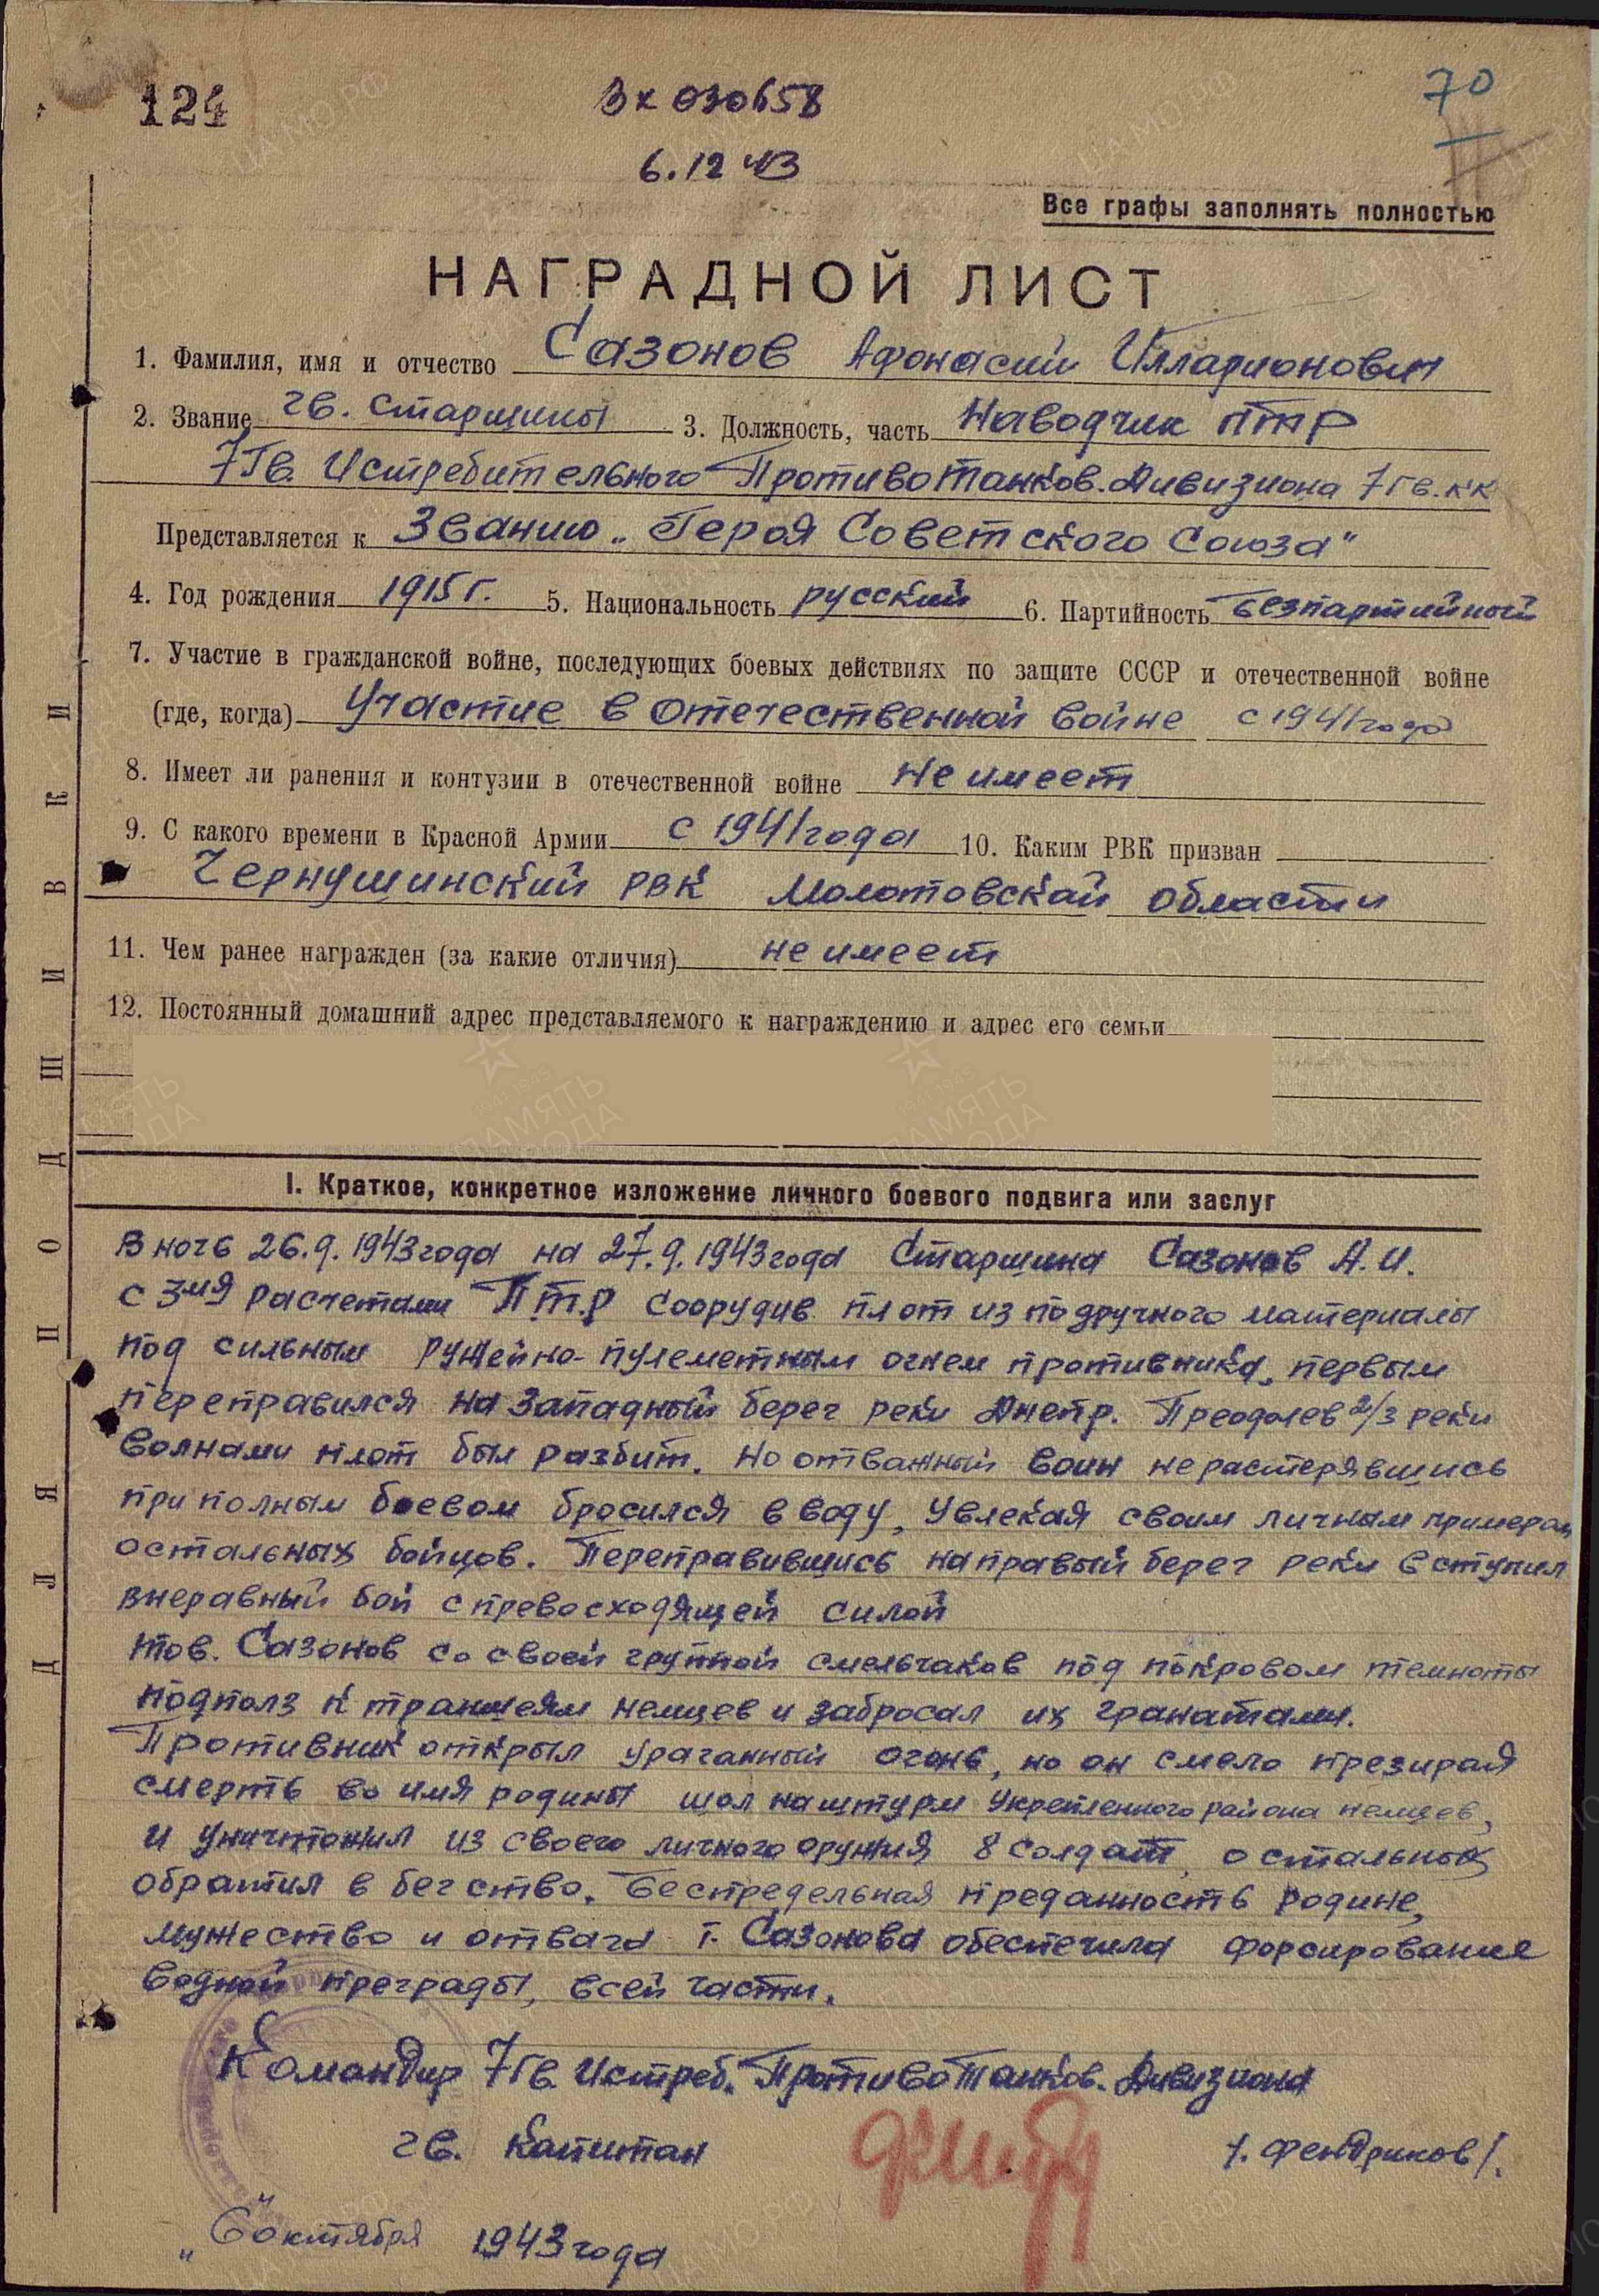 124
Вх 030658
70
6.12 43
Все графы заполнять полностью
НАГРАДНОЙ ЛИСТ
1. Фамилия, имя и отчество Сазонов Афонасий Илларионович
2. Звание гв. старшины 3. Должность, часть Наводчик ПТР
7 Гв. Истребительного Противотанков. Дивизиона 7 гв. кк
Представляется к Званию „Героя Советского Союза"
4. Год рождения 1915 г. 5. Национальность русский 6. Партийность безпартийный
7. Участие в гражданской войне, последующих боевых действиях по защите СССР и отечественной войне
(где, когда) Участие в отечественной войне с 1941 года
8. Имеет ли ранения и контузии в отечественной войне не имеет
9. С какого времени в Красной Армии с 1941 года 10. Каким РВК призван
Чернушинский РВК Молотовской области
11. Чем ранее награжден (за какие отличия) не имеет
12. Постоянный домашний адрес представляемого к награждению и адрес его семьи
ДЛЯ ПОДШИВКИ
I. Краткое, конкретное изложение личного боевого подвига или заслуг
В ночь 26.9.1943 года на 27.9.1943 года Старшина Сазонов А.И.
с 3мя расчетами ПТР соорудив плот из подручного материалы
под сильным ружейно-пулеметным огнем противника, первым
переправился на западный берег реки Днепр. Преодолев 2/3 реки
волнами плот был разбит. Но отважный воин нерастерявшись
при полным боевом бросился в воду, увлекая своим личным примером
остальных бойцов. Переправившись на правый берег реки вступил
внеравный бой с превосходящей силой
тов. Сазонов со своей группой смельчаков под покровом темноты
подполз к траншеям немцев и забросал их гранатами.
Противник открыл ураганный огонь, но он смело презирая
смерть во имя родины шол на штурм укрепленного района немцев,
и уничтожил из своего личного оружия 8 солдат, остальных
обратил в бегство. Беспредельная преданность родине,
мужество и отвага т. Сазонова обеспечила форсирование
водной преграды, всей части.
Командир 7 гв. Истреб. Противотанков. Дивизиона
гв. капитан /. Фендриков /.
„6" октября 1943 года